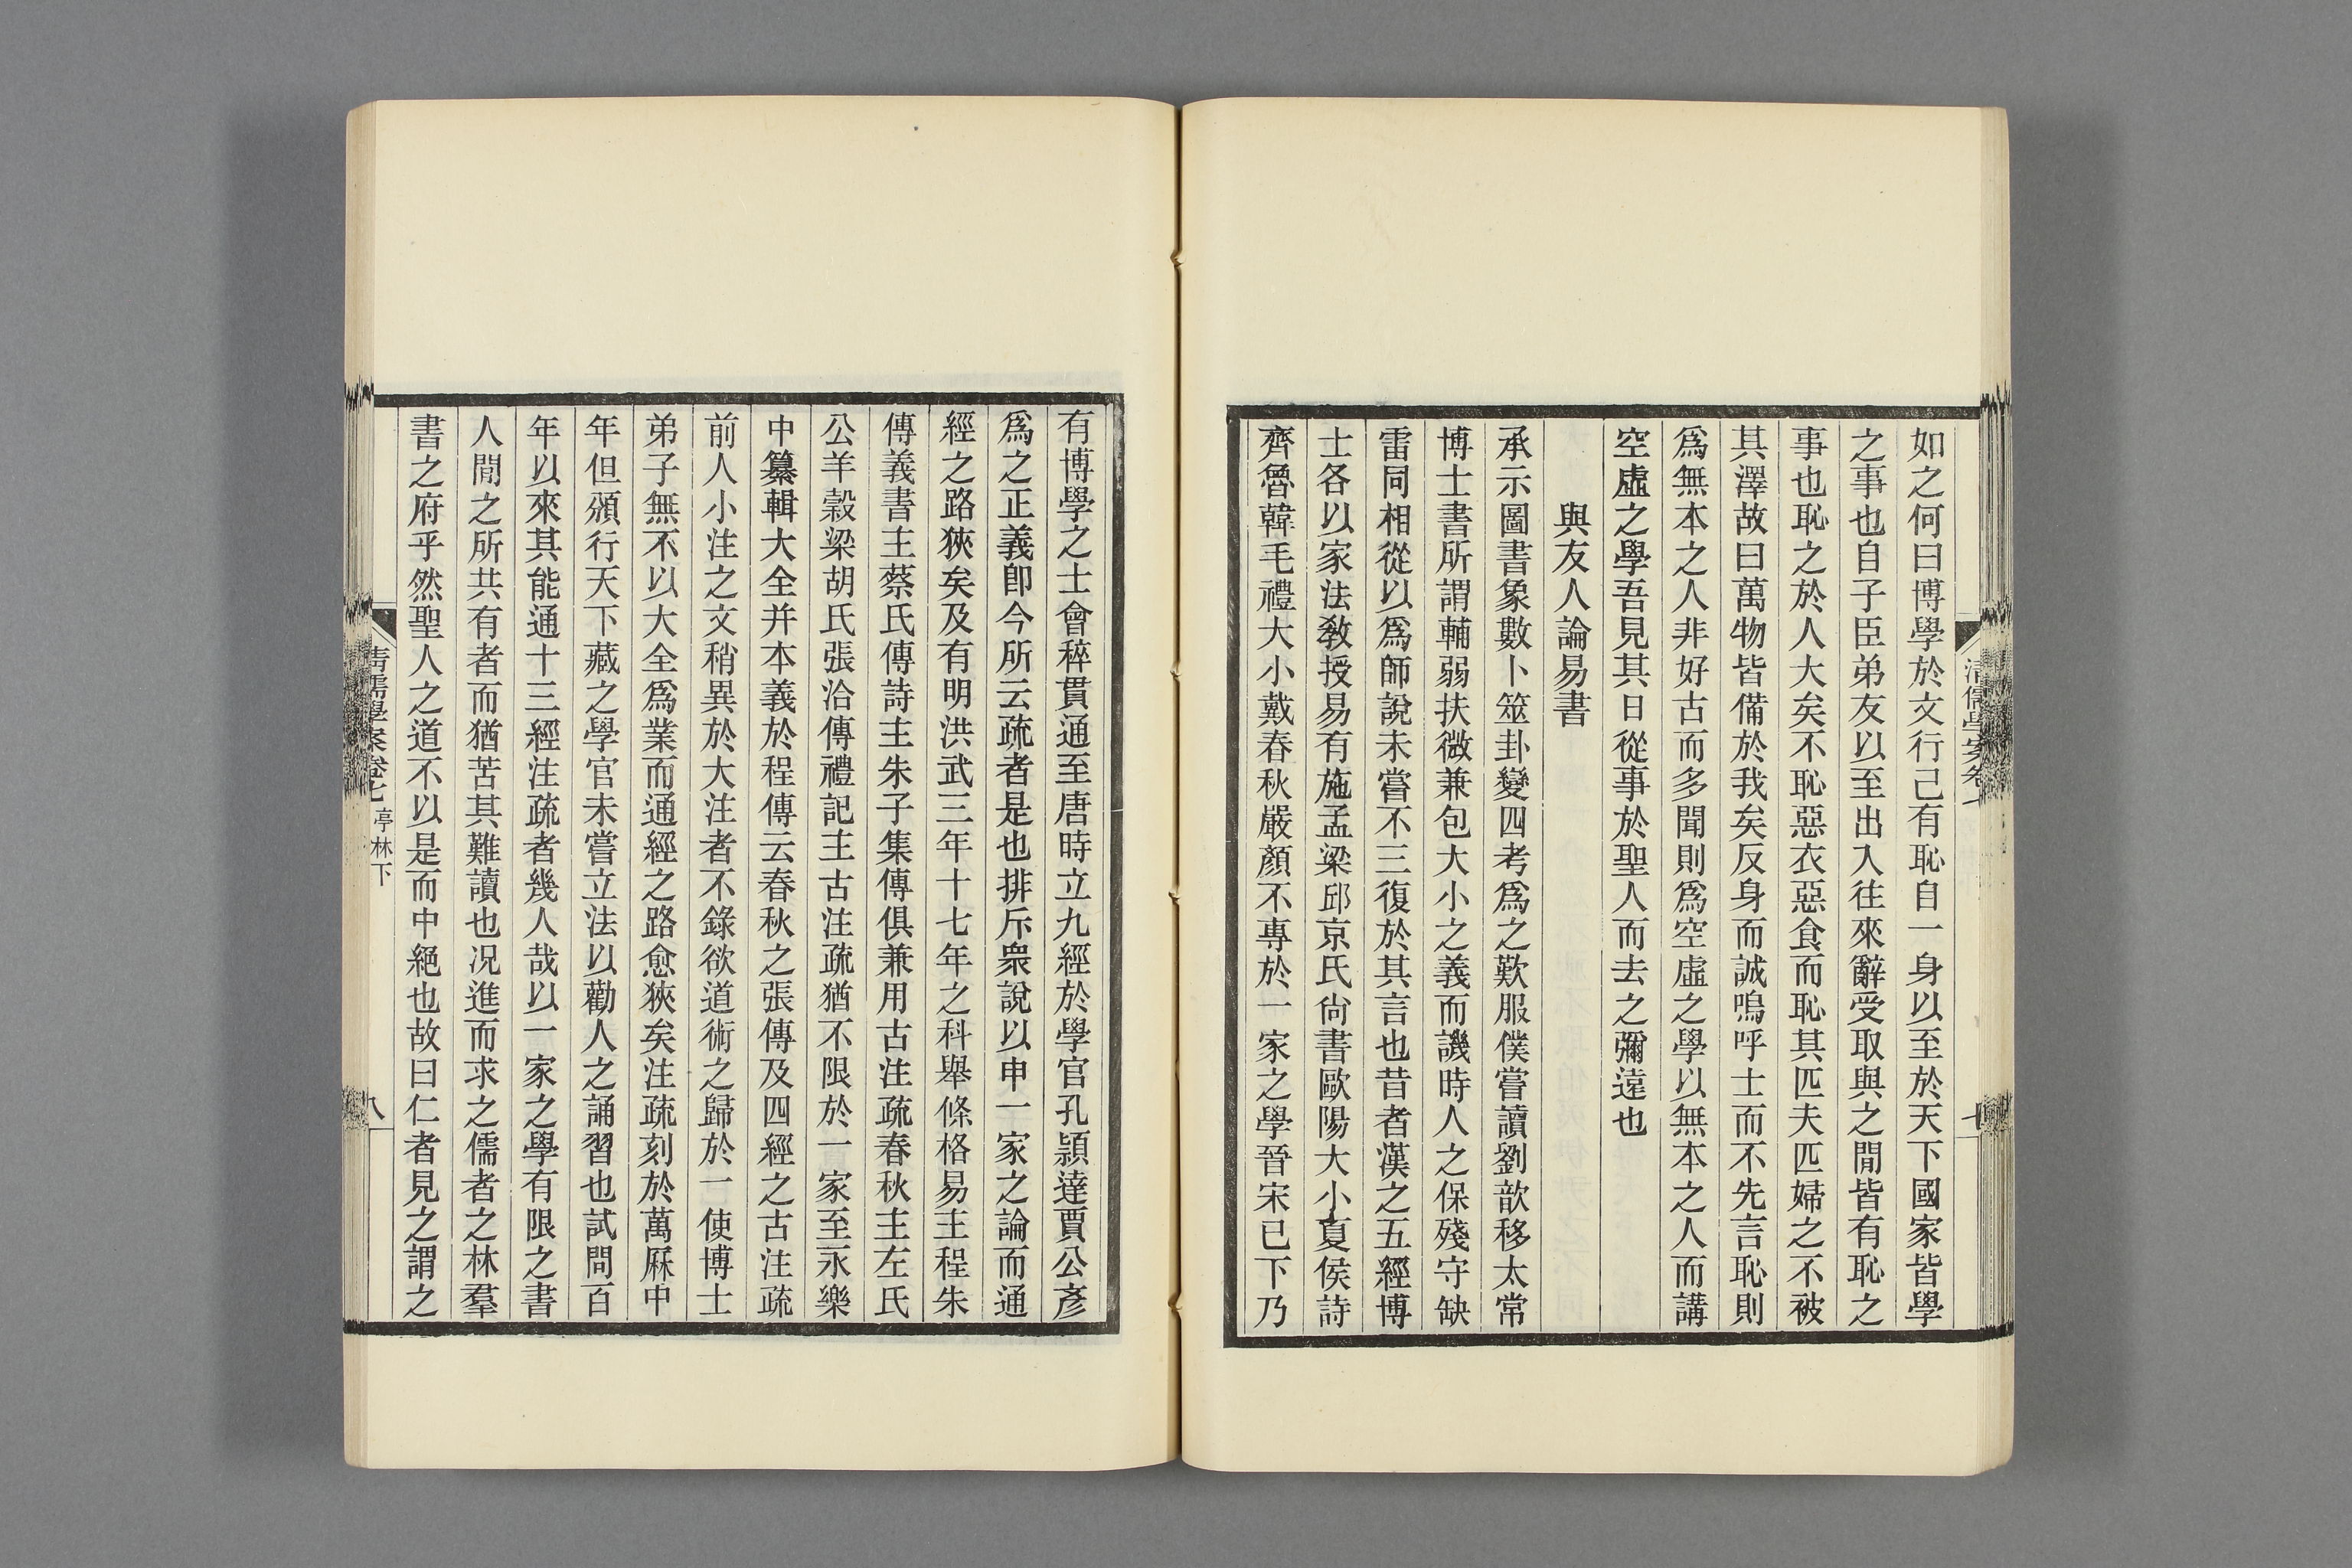 如之何曰博學於文行己有恥自一身以至於天下國家皆學
之事也自子臣弟友以至出入往來辭受取與之閒皆有恥之
事也恥之於人大矣不恥惡衣惡食而恥其匹夫匹婦之不被
其澤故曰萬物皆備於我矣反身而誠嗚呼士而不先言恥則
爲無本之人非好古而多聞則爲空虛之學以無本之人而講
空虛之學吾見其日從事於聖人而去之彌遠也
與友人論易書
承示圖書象數卜筮卦變四考爲之歎服僕嘗讀劉歆移太常
博士書所謂輔弱扶微兼包大小之義而譏時人之保殘守缺
雷同相從以爲師說未嘗不三復於其言也昔者漢之五經博
士各以家法敎授易有施孟梁邱京氏尙書歐陽大小夏侯詩
齊魯韓毛禮大小戴春秋嚴顏不專於一家之學晉宋已下乃
有博學之士會稡貫通至唐時立九經於學官孔穎達賈公彥
爲之正義卽今所云疏者是也排斥衆說以申一家之論而通
經之路狹矣及有明洪武三年十七年之科舉條格易主程朱
傳義書主蔡氏傳詩主朱子集傳俱兼用古注疏春秋主左氏
公羊穀梁胡氏張洽傳禮記主古注疏猶不限於一家至永樂
中纂輯大全并本義於程傳云春秋之張傳及四經之古注疏
前人小注之文稍異於大注者不錄欲道術之歸於一使博士
弟子無不以大全爲業而通經之路愈狹矣注疏刻於萬厤中
年但頒行天下藏之學官未嘗立法以勸人之誦習也試問百
年以來其能通十三經注疏者幾人哉以一家之學有限之書
人閒之所共有者而猶苦其難讀也況進而求之儒者之林羣
書之府乎然聖人之道不以是而中絕也故曰仁者見之謂之
清儒學案卷七 亭林下
八